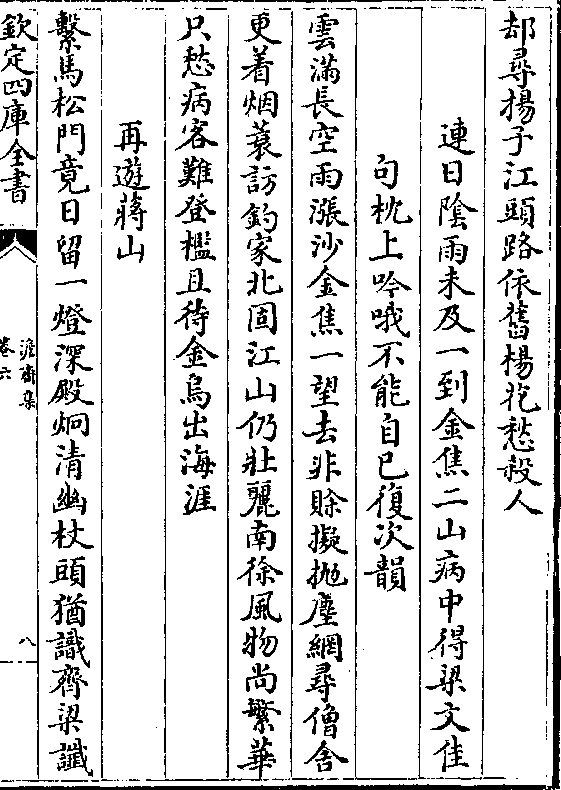 却尋揚子江頭路依舊楊花愁殺人
連日陰雨未及一到金焦二山病中得梁文佳
句枕上吟哦不能自已復次韻
雲滿長空雨漲沙金焦一望去非賖擬抛塵網尋僧舍
更着烟蓑訪釣家北固江山仍壯麗南徐風物尚繁華
只愁病客難登檻且待金烏出海涯
再遊蔣山
繫馬松門竟日留一燈深殿炯清幽杖頭猶識齊梁讖
欽定四庫全書
卷六
八